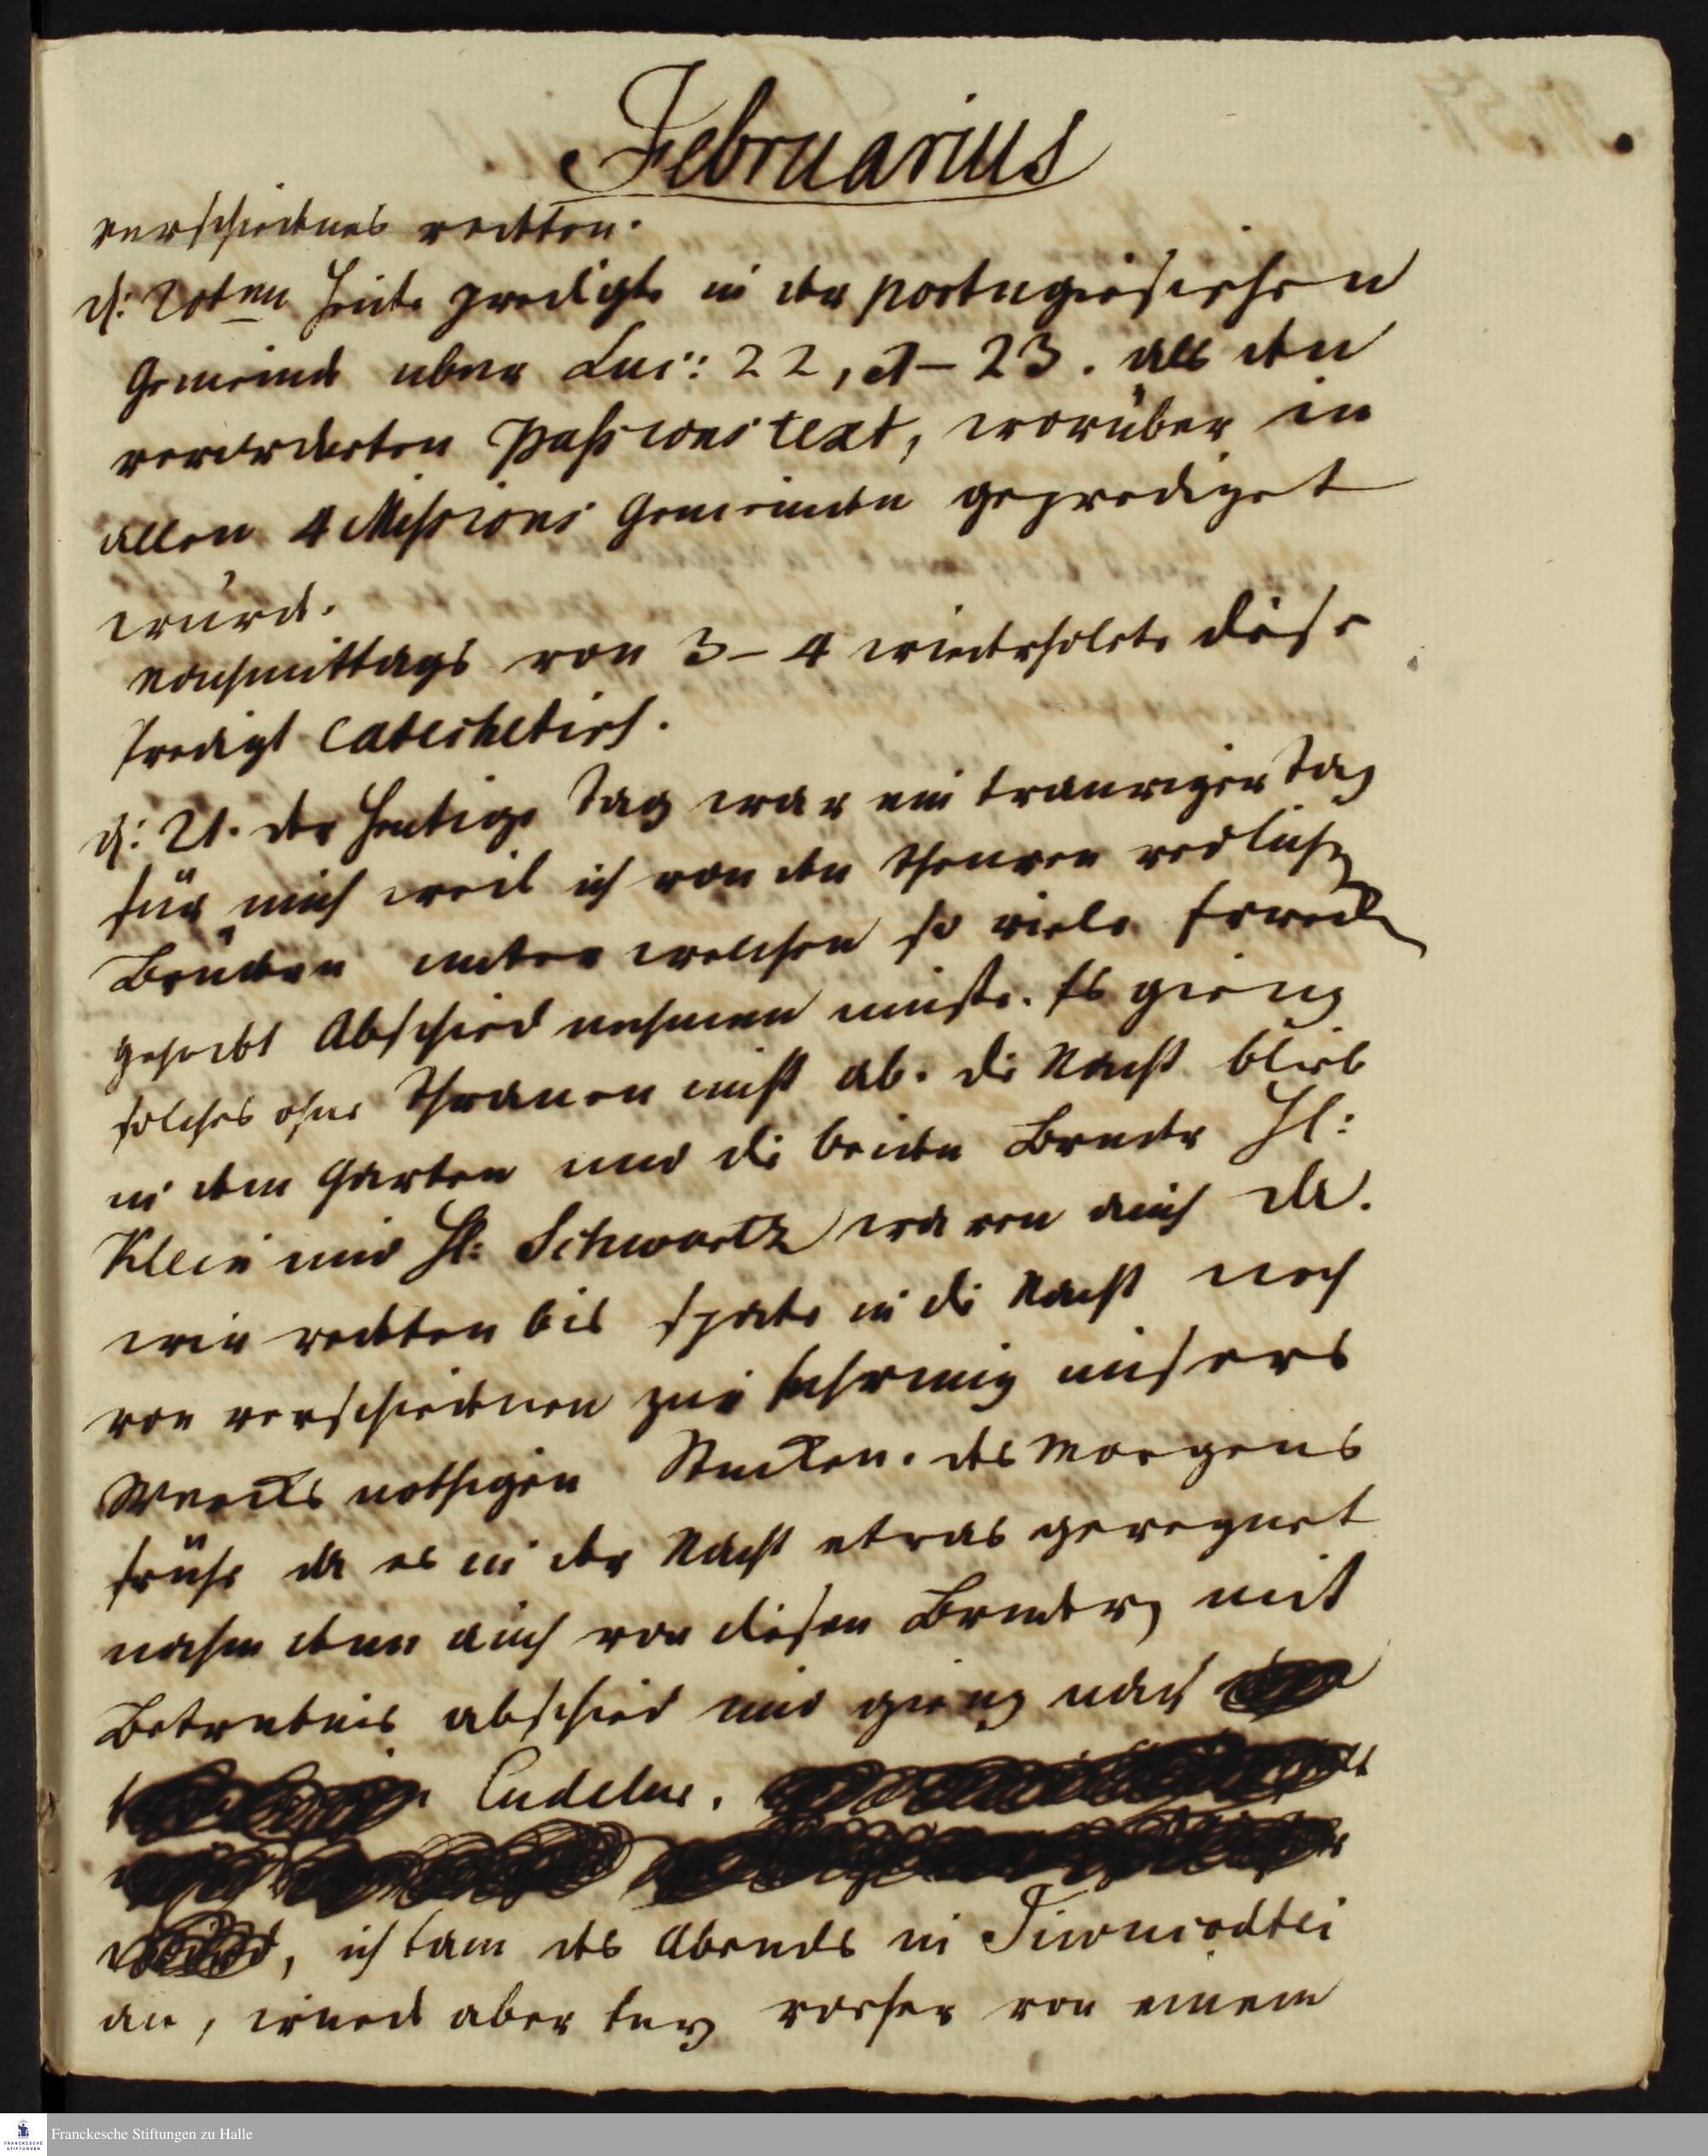 Februarius
verschiednes redten.
d: 20ten Heute predigte in der portugiesischen
Gemeind uber Luc: 22, 1-23. als den
verordneten Passions text, worüber in
allen 4 Missions Gemeinden geprediget
wurd.
Nachmittags von 3-4 wiederholete diese
Predigt catechetisch.
d: 21. der heutige Tag war ein trauriger Tag
für mich weil ich von den theuren redlich
Brüdern unter welchen so viele
gehabt Abschied nehmen muste. Es gieng
solches ohne Thranen nicht ab. die Nacht blieb
in dem Garten und die beiden Bruder H:
Klein und H: Schwartz waren auch da.
wir redten bis spate in die Nacht noch
von verschiednen zur fuhrung unsers
Wercks nothigen Stucken. des Morgens
frühe da es in der Nacht etwas geregnet
nahm denn auch von diesen Brudern mit
Betrubnis abschied und gieng nach
Cudelur.
, ich kam des Abends in
an, wurd aber kurz vorher von einem
Franckesche Stiftungen zu Halle
FRANCKESCHE
STIFTUNGEN